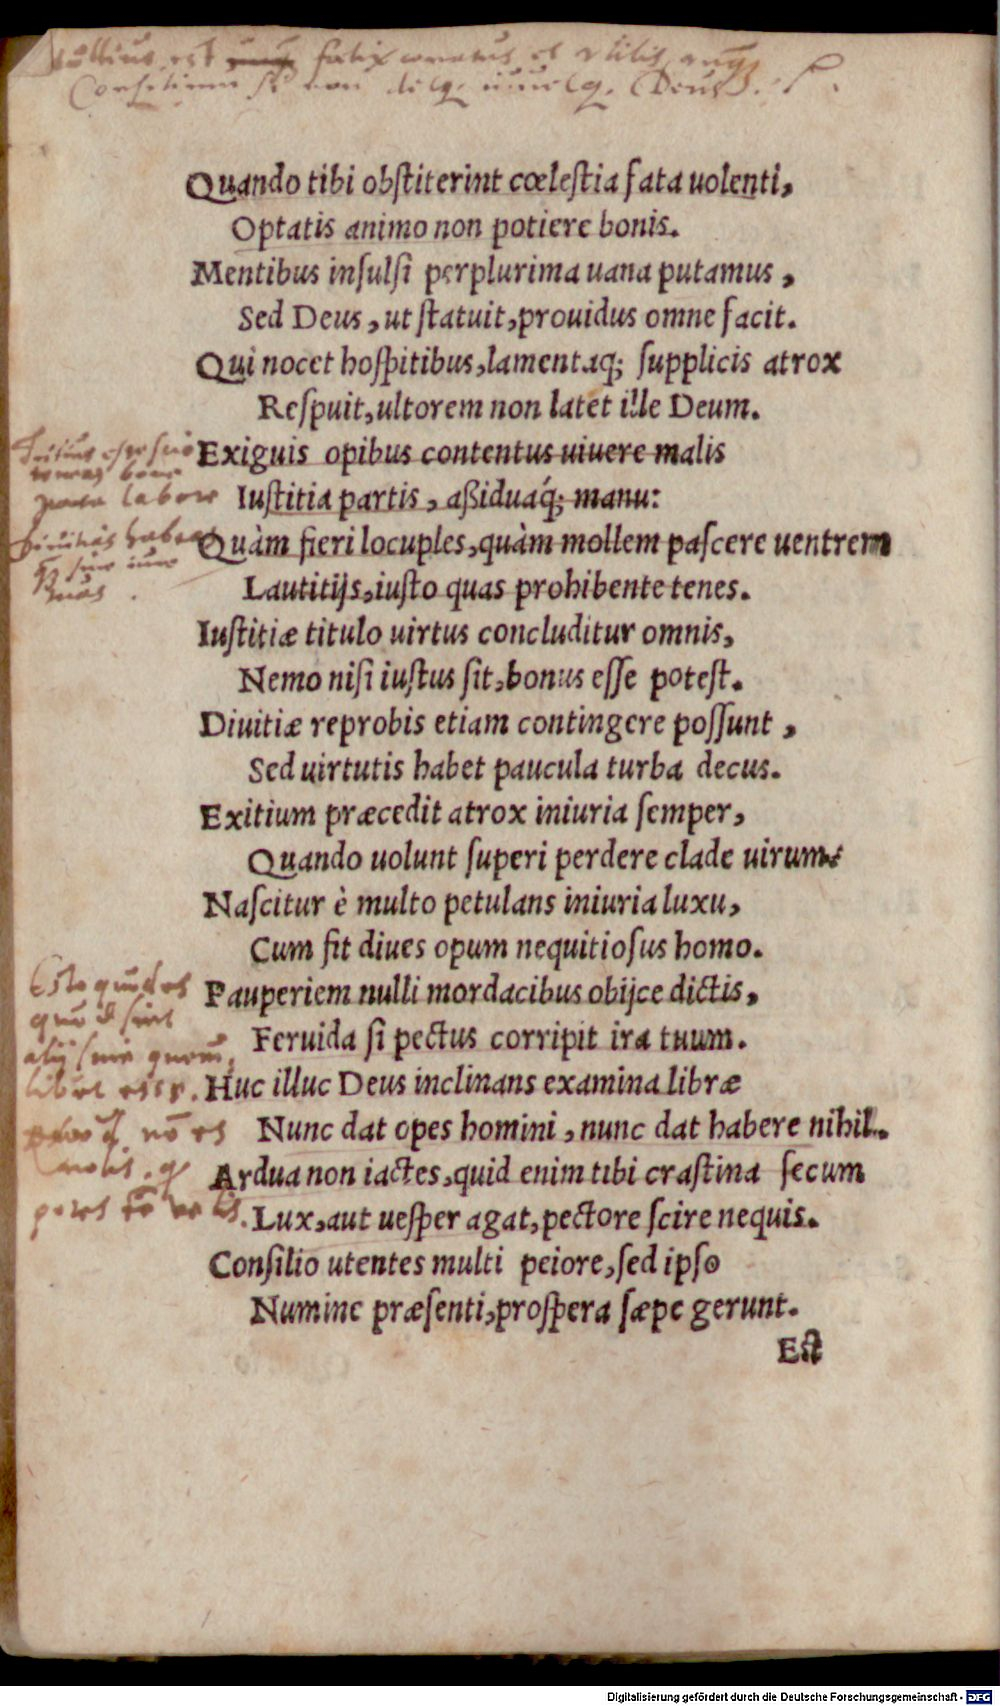 est fœlix conatus et utilis
Consilium si non detq. iuuetq. Deus.
Quando tibi obſtiterint cœleſtia fata uolenti,
Optatis animo non potiere bonis.
Mentibus inſulſi perplurima uana putamus,
Sed Deus, ut ſtatuit, prouidus omne facit.
Qui nocet hoſpitibus, lamentaq; ſupplicis atrox
Reſpuit, ultorem non latet ille Deum.
Exiguis opibus contentus uiuere malis
Iuſtitia partis, aßiduaq́; manu:
Quàm fieri locuples, quàm mollem paſcere uentrem
Lautitijs, iuſto quas prohibente tenes.
Iuſtitiæ titulo uirtus concluditur omnis,
Nemo niſi iuſtus ſit, bonus eſſe poteſt.
Diuitiæ reprobis etiam contingere poſſunt,
Sed uirtutis habet paucula turba decus.
Exitium præcedit atrox iniuria ſemper,
Quando uolunt ſuperi perdere clade uirum.
Naſcitur è multo petulans iniuria luxu,
Cum fit diues opum nequitioſus homo.
Pauperiem nulli mordacibus obijce dictis,
Feruida ſi pectus corripit ira tuum.
Huc illuc Deus inclinans examina libræ
Nunc dat opes homini, nunc dat habere nihil.
Ardua non iactes, quid enim tibi craſtina ſecum
Lux, aut ueſper agat, pectore ſcire nequis.
Conſilio utentes multi peiore, ſed ipſo
Numine præſenti, proſpera ſæpe gerunt.
Eſt
bona
labore
Esto quod es
alij sine
libet esse.
Digitalisierung gefördert durch die Deutsche Forschungsgemeinschaft - DFG